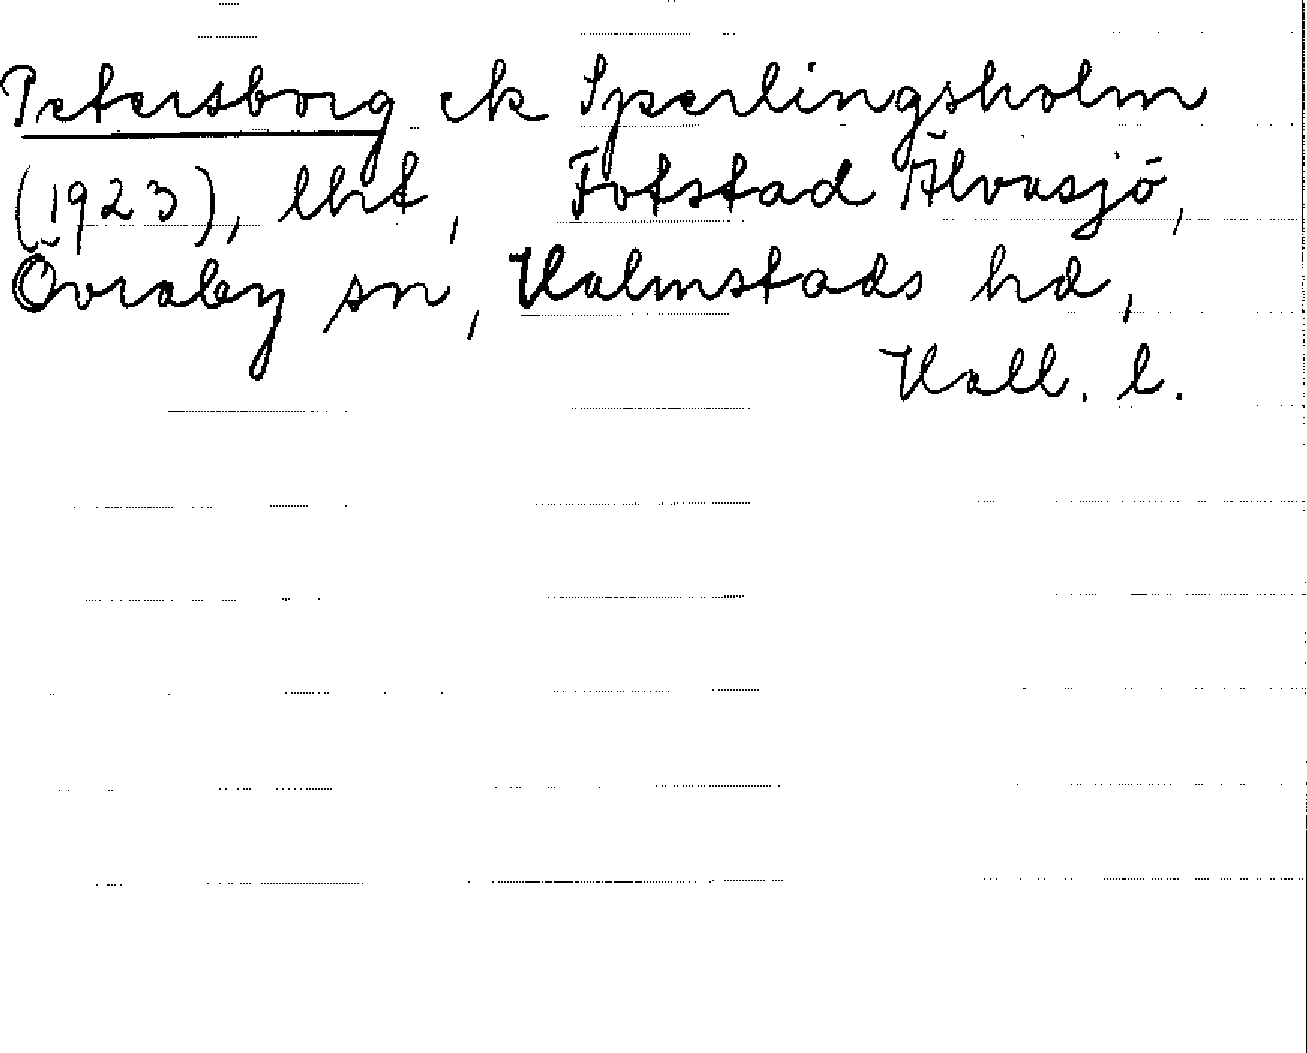 Petersborg ek Sperlingsholm
(1923), lht, Fotstad Älvasjö,
Övraby sn, Halmstads hd,
Hall. l.